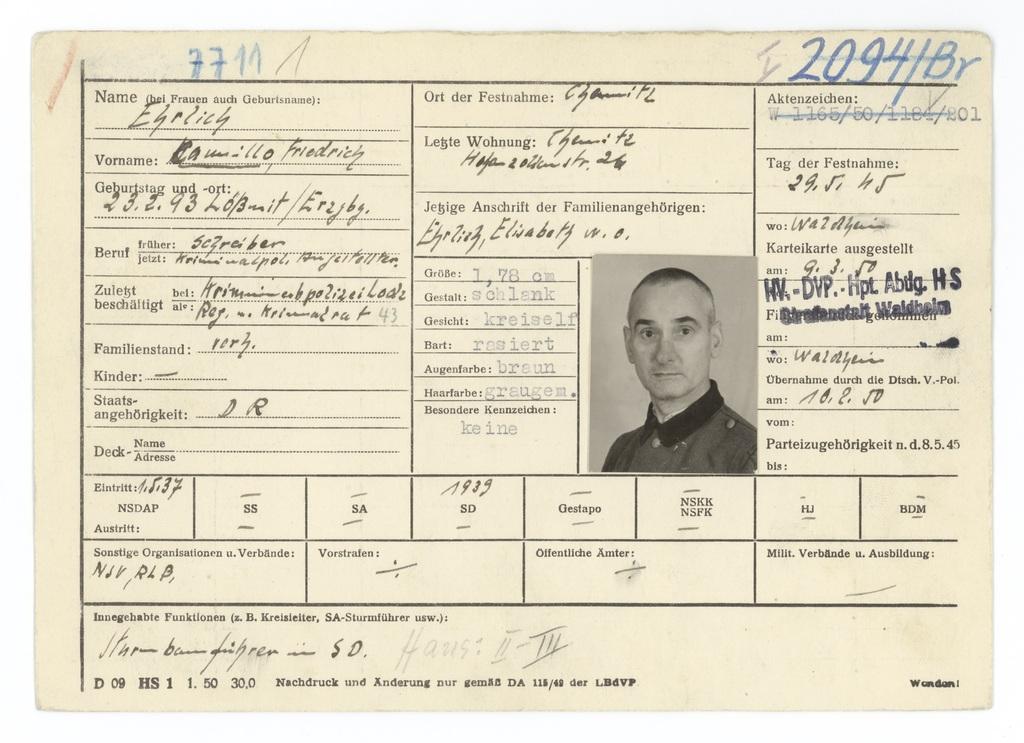 7711 1
2094/Br
Name (bei Frauen auch Geburtsname):
Ehrlich
Vorname: Camillo, Friedrich
Geburtstag und -ort:
23.2.93 Lößnit/Erzgbg.
Beruf früher: Schreiber
jetzt: Kriminalpol. Angestellter
Zuletzt beschäftigt bei: Kriminalpolizei Lodz
als: Reg. u. Kriminalrat 43
Familienstand: verh.
Kinder: —
Staats-
angehörigkeit: D R
Deck- Name
Adresse
Ort der Festnahme: Chemnitz
Letzte Wohnung: Chemnitz
Hohenzollernstr. 26
Jetzige Anschrift der Familienangehörigen:
Ehrlich, Elisabeth w. o.
Größe: 1,78 cm
Gestalt: schlank
Gesicht: kreiself
Bart: rasiert
Augenfarbe: braun
Haarfarbe: graugem.
Besondere Kennzeichen:
keine
Aktenzeichen:
W 1165/50/1184/201
Tag der Festnahme:
29.5.45
wo: Waldheim
Karteikarte ausgestellt
am: 9.3.50
HV.-DVP.-Hpt. Abtlg. HS
Strafanstalt Waldheim
am:
wo: Waldheim
Übernahme durch die Dtsch. V.-Pol.
am: 10.2.50
vom:
Parteizugehörigkeit n.d.8.5.45
bis:
Eintritt: 1.5.37 — — 1939 — — — —
NSDAP SS SA SD Gestapo NSKK NSFK HJ BDM
Austritt: — — — — — — —
Sonstige Organisationen u. Verbände:
NSV, RLB,
Vorstrafen:
Öffentliche Ämter:
Milit. Verbände u. Ausbildung:
—
Innegehabte Funktionen (z. B. Kreisleiter, SA-Sturmführer usw.):
Sturmbannführer im SD. Haus: II-III
D 09 HS 1 1. 50 30,0 Nachdruck und Änderung nur gemäß DA 115/49 der LBdVP
Wenden!